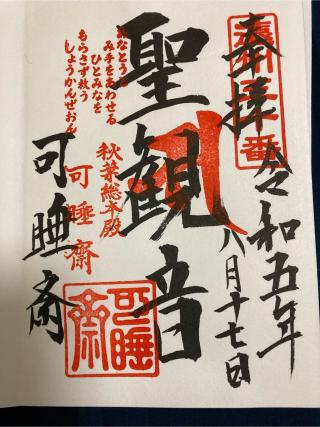 奉拝
令和五年
八月十七日
聖観音
秋葉総本殿
可睡齋
なとう
み手をあわせる
ひとみなを
もらさず救う
しょうかんぜおん
可睡斎
可睡齋